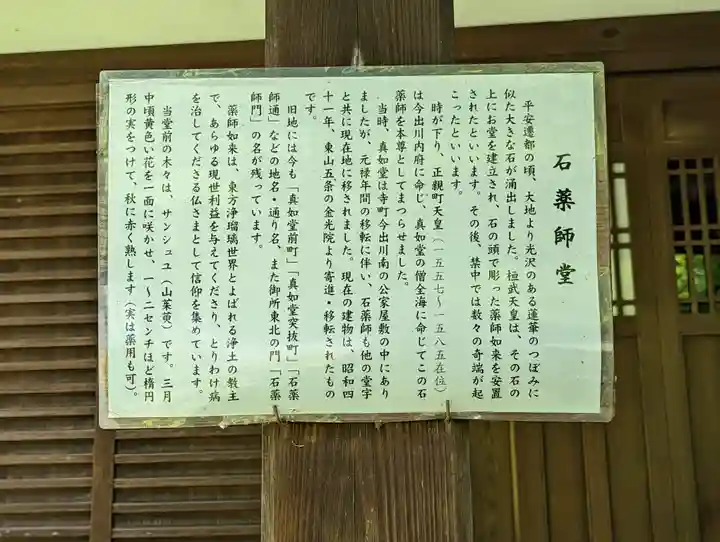 石薬師堂
平安遷都の頃、大地より光沢のある蓮華のつぼみに
似た大きな石が涌出しました。桓武天皇は、その石の
上にお堂を建立され、石の頭で彫った薬師如来を安置
されたといいます。その後、禁中では数々の奇端が起
こったといいます。
時が下り、正親町天皇(一五五七〜一五八五在位)
は今出川内府に命じ、真如堂の僧全海に命じてこの石
薬師を本尊としてまつらせました。
当時、真如堂は寺町今出川南の公家屋敷の中にあり
ましたが、元禄年間の移転に伴い、石薬師も他の堂宇
と共に現在地に移されました。現在の建物は、昭和四
十一年、東山五条の金光院より寄進・移転されたもの
です。
旧地には今も「真如堂前町」「真如堂突抜町」「石薬
師通」などの地名・通り名、また御所東北の門「石薬
師門」の名が残っています。
薬師如来は、東方浄瑠璃世界とよばれる浄土の教主
で、あらゆる現世利益を与えてくださり、とりわけ病
を治してくださる仏さまとして信仰を集めています。
当堂前の木々は、サンシュユ(山茱萸)です。三月
中頃黄色い花を一面に咲かせ、一〜二センチほど楕円
形の実をつけて、秋に赤く熟します(実は薬用も可)。